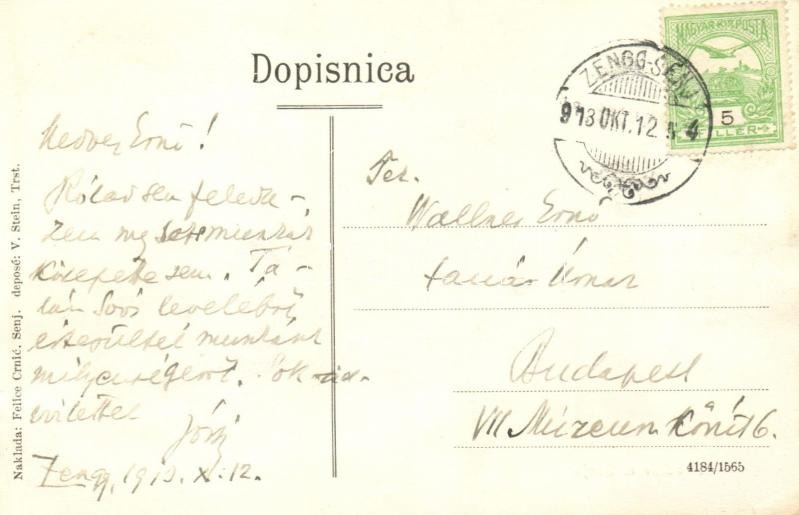 Dopisnica
MAGYAR KIR. POSTA
5
FILLER
ZENGG-SENJ
913 OKT. 12
Kedves Ernő!
Rólad sem feledke-
zem meg sok munkám
közepette sem. Ta-
lán levelébői
értesültél munkánk
üdv-
özlettel
Zengg, 1913. X. 12.
Wallner Ernő
tanár úrnak
Budapest
VII Múzeum körút 6.
Naklada: Felice Crnić. Senj. deposé: V. Stein, Trst.
4184/1565